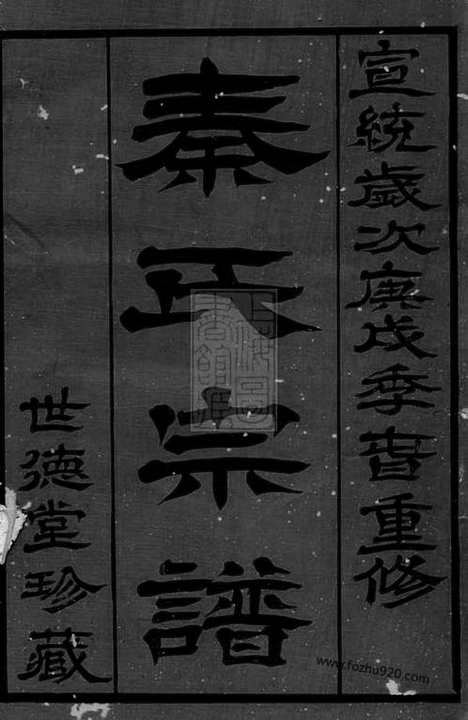 宣統歲次庚戌季春重修
秦氏宗譜
世德堂珍藏
www.fozhu920.com